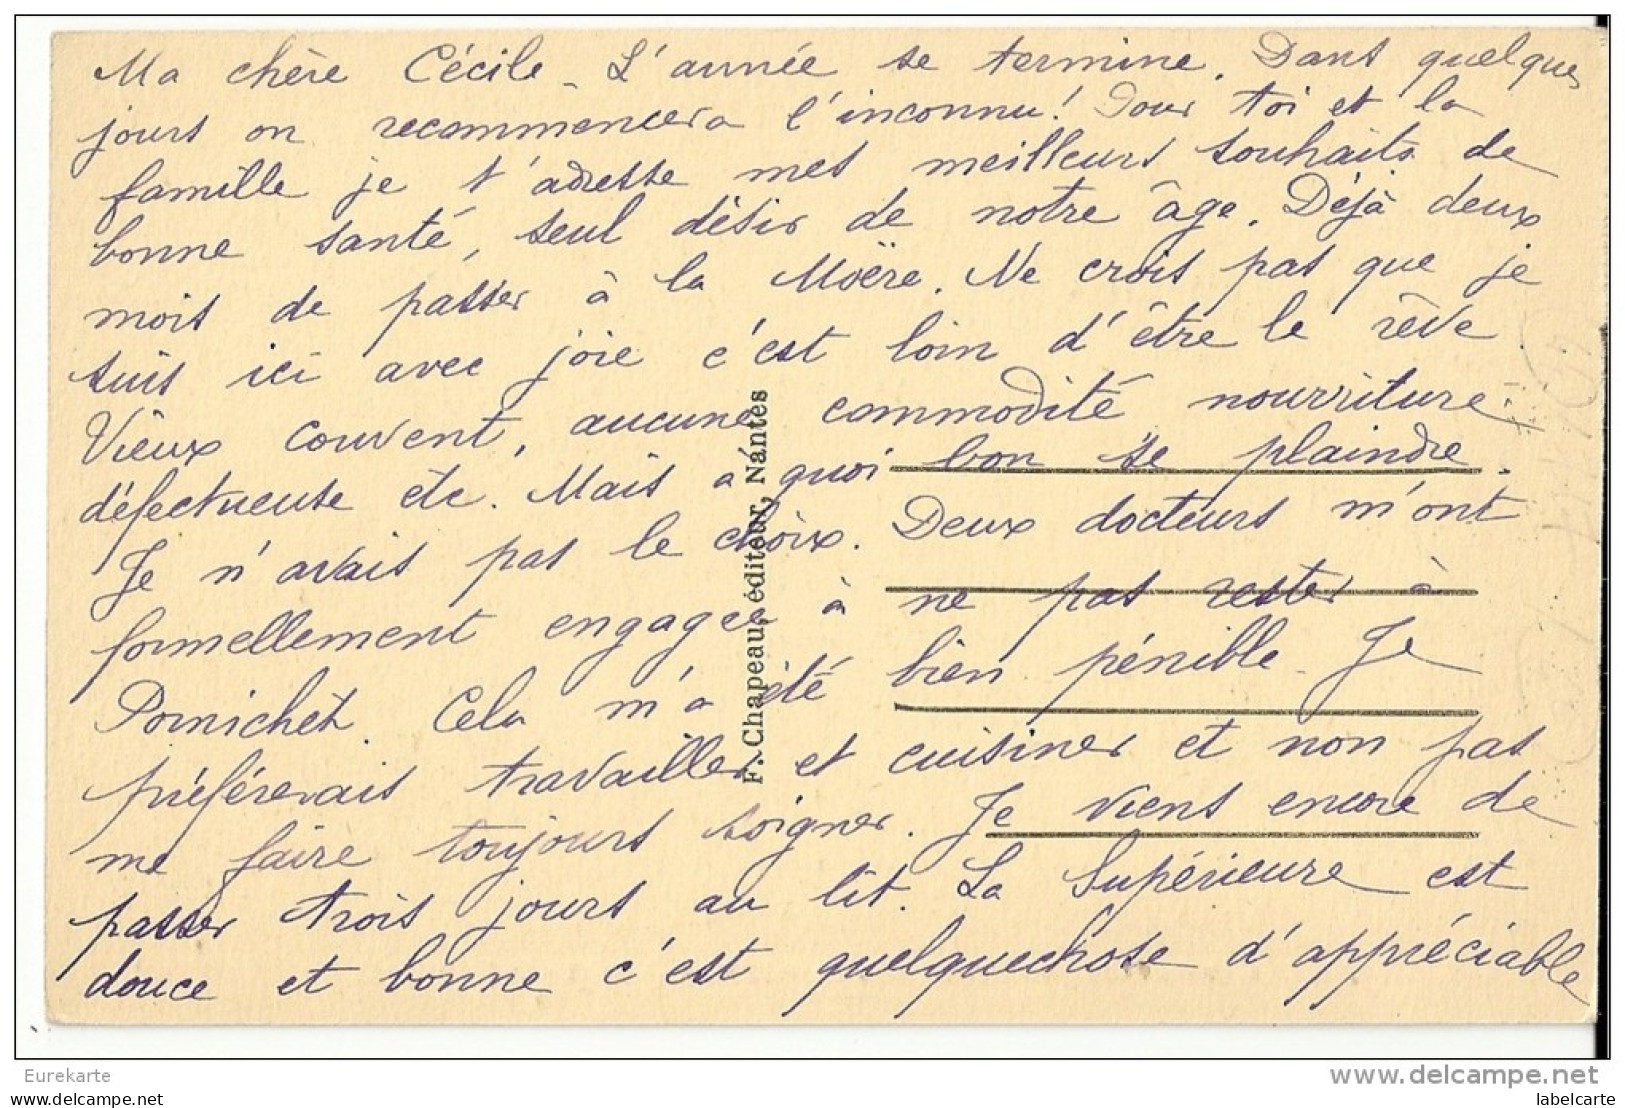 Ma chère Cécile - L'année se termine. Dans quelques
jours on recommencera l'inconnu! Pour toi et la
famille je t'adresse mes meilleurs souhaits de
bonne santé, seul désir de notre âge. Déjà deux
mois de passer à la Moëre. Ne crois pas que je
suis ici avec joie c'est loin d'être le rêve.
Vieux couvent, aucune commodité nourriture
défectueuse etc. Mais à quoi bon se plaindre.
Je n'avais pas le choix. Deux docteurs m'ont
formellement engagée à ne pas rester à
Pornichet. Cela m'a été bien pénible - Je
préférerais travailler et cuisiner et non pas
me faire toujours soigner. Je viens encore de
passer trois jours au lit. La Supérieure est
douce et bonne c'est quelquechose d'appréciable
F. Chapeau, éditeur, Nantes
Eurekarte
www.delcampe.net
labelcarte
labelcarte